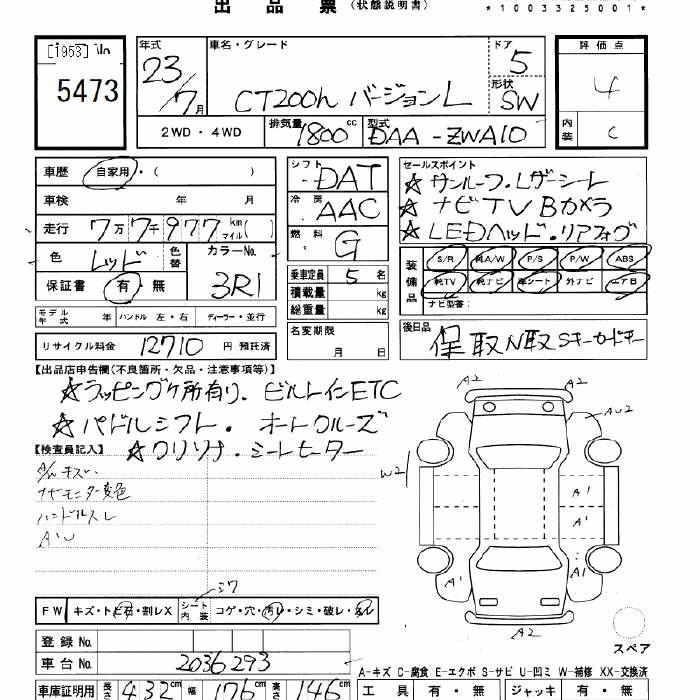 出品票 (状態説明書)
*1003325001*
[1953] No
5473
年式 23/7月
車名・グレード CT200h バージョンL
ドア 5
形状 SW
評価点 4
内装 C
2WD・4WD 排気量 1800cc 型式 DAA-ZWA10
車歴 自家用・( )
車検 年 月
走行 7万7千977km( ) マイル
色 レッド 色替 カラーNo. 3R1
保証書 有・無
モデル年式 年 ハンドル 左・右 ディーラー・並行
リサイクル料金 12710円 預託済
シフト DAT
冷房 AAC
燃料 G
乗車定員 5名
積載量 kg
総重量 kg
名変期限 月 日
セールスポイント
☆サンルーフ・Lザーシート
☆ナビTV Bカメラ
☆LEDヘッド・リアフォグ
装備品 S/R 純A/W P/S P/W ABS
純TV 純ナビ 革シート 外ナビ エアB
ナビ型番:
後日品 保取N取Sキーカードキー
【出品店申告欄(不良箇所・欠品・注意事項等)】
☆ラッピングケ所有り. ビルトインETC
☆パドルシフト・オートクルーズ
☆クリソナ・シートヒーター
【検査員記入】
A/Wキズ
ナビモニター変色
ハンドルスレ
AU
A2
A2
AU2
W2
A1
A1
A1
A1
A2
シワ
FW キズ・トビ石・割レX シート内装 コゲ・穴・汚レ・シミ・破レ・スレ
登録No.
車台No. 2036293
スペア
A-キズ C-腐食 E-エクボ S-サビ U-凹ミ W-補修 XX-交換済
車庫証明用 長さ 432cm 幅 176cm 高さ 146cm
工具 有・無 ジャッキ 有・無